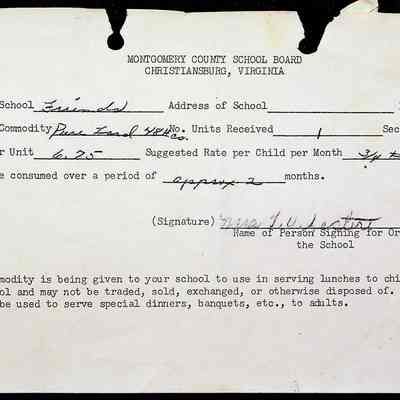 MONTGOMERY COUNTY SCHOOL BOARD
CHRISTIANSBURG, VIRGINIA
School Friends Address of School
Commodity Pure Lard 48# No. Units Received 1 Sec
r Unit 6.25 Suggested Rate per Child per Month 3/4 #
e consumed over a period of approx 2 months.
(Signature) Mrs
Name of Person Signing for Or
the School
modity is being given to your school to use in serving lunches to chi
ol and may not be traded, sold, exchanged, or otherwise disposed of.
be used to serve special dinners, banquets, etc., to adults.